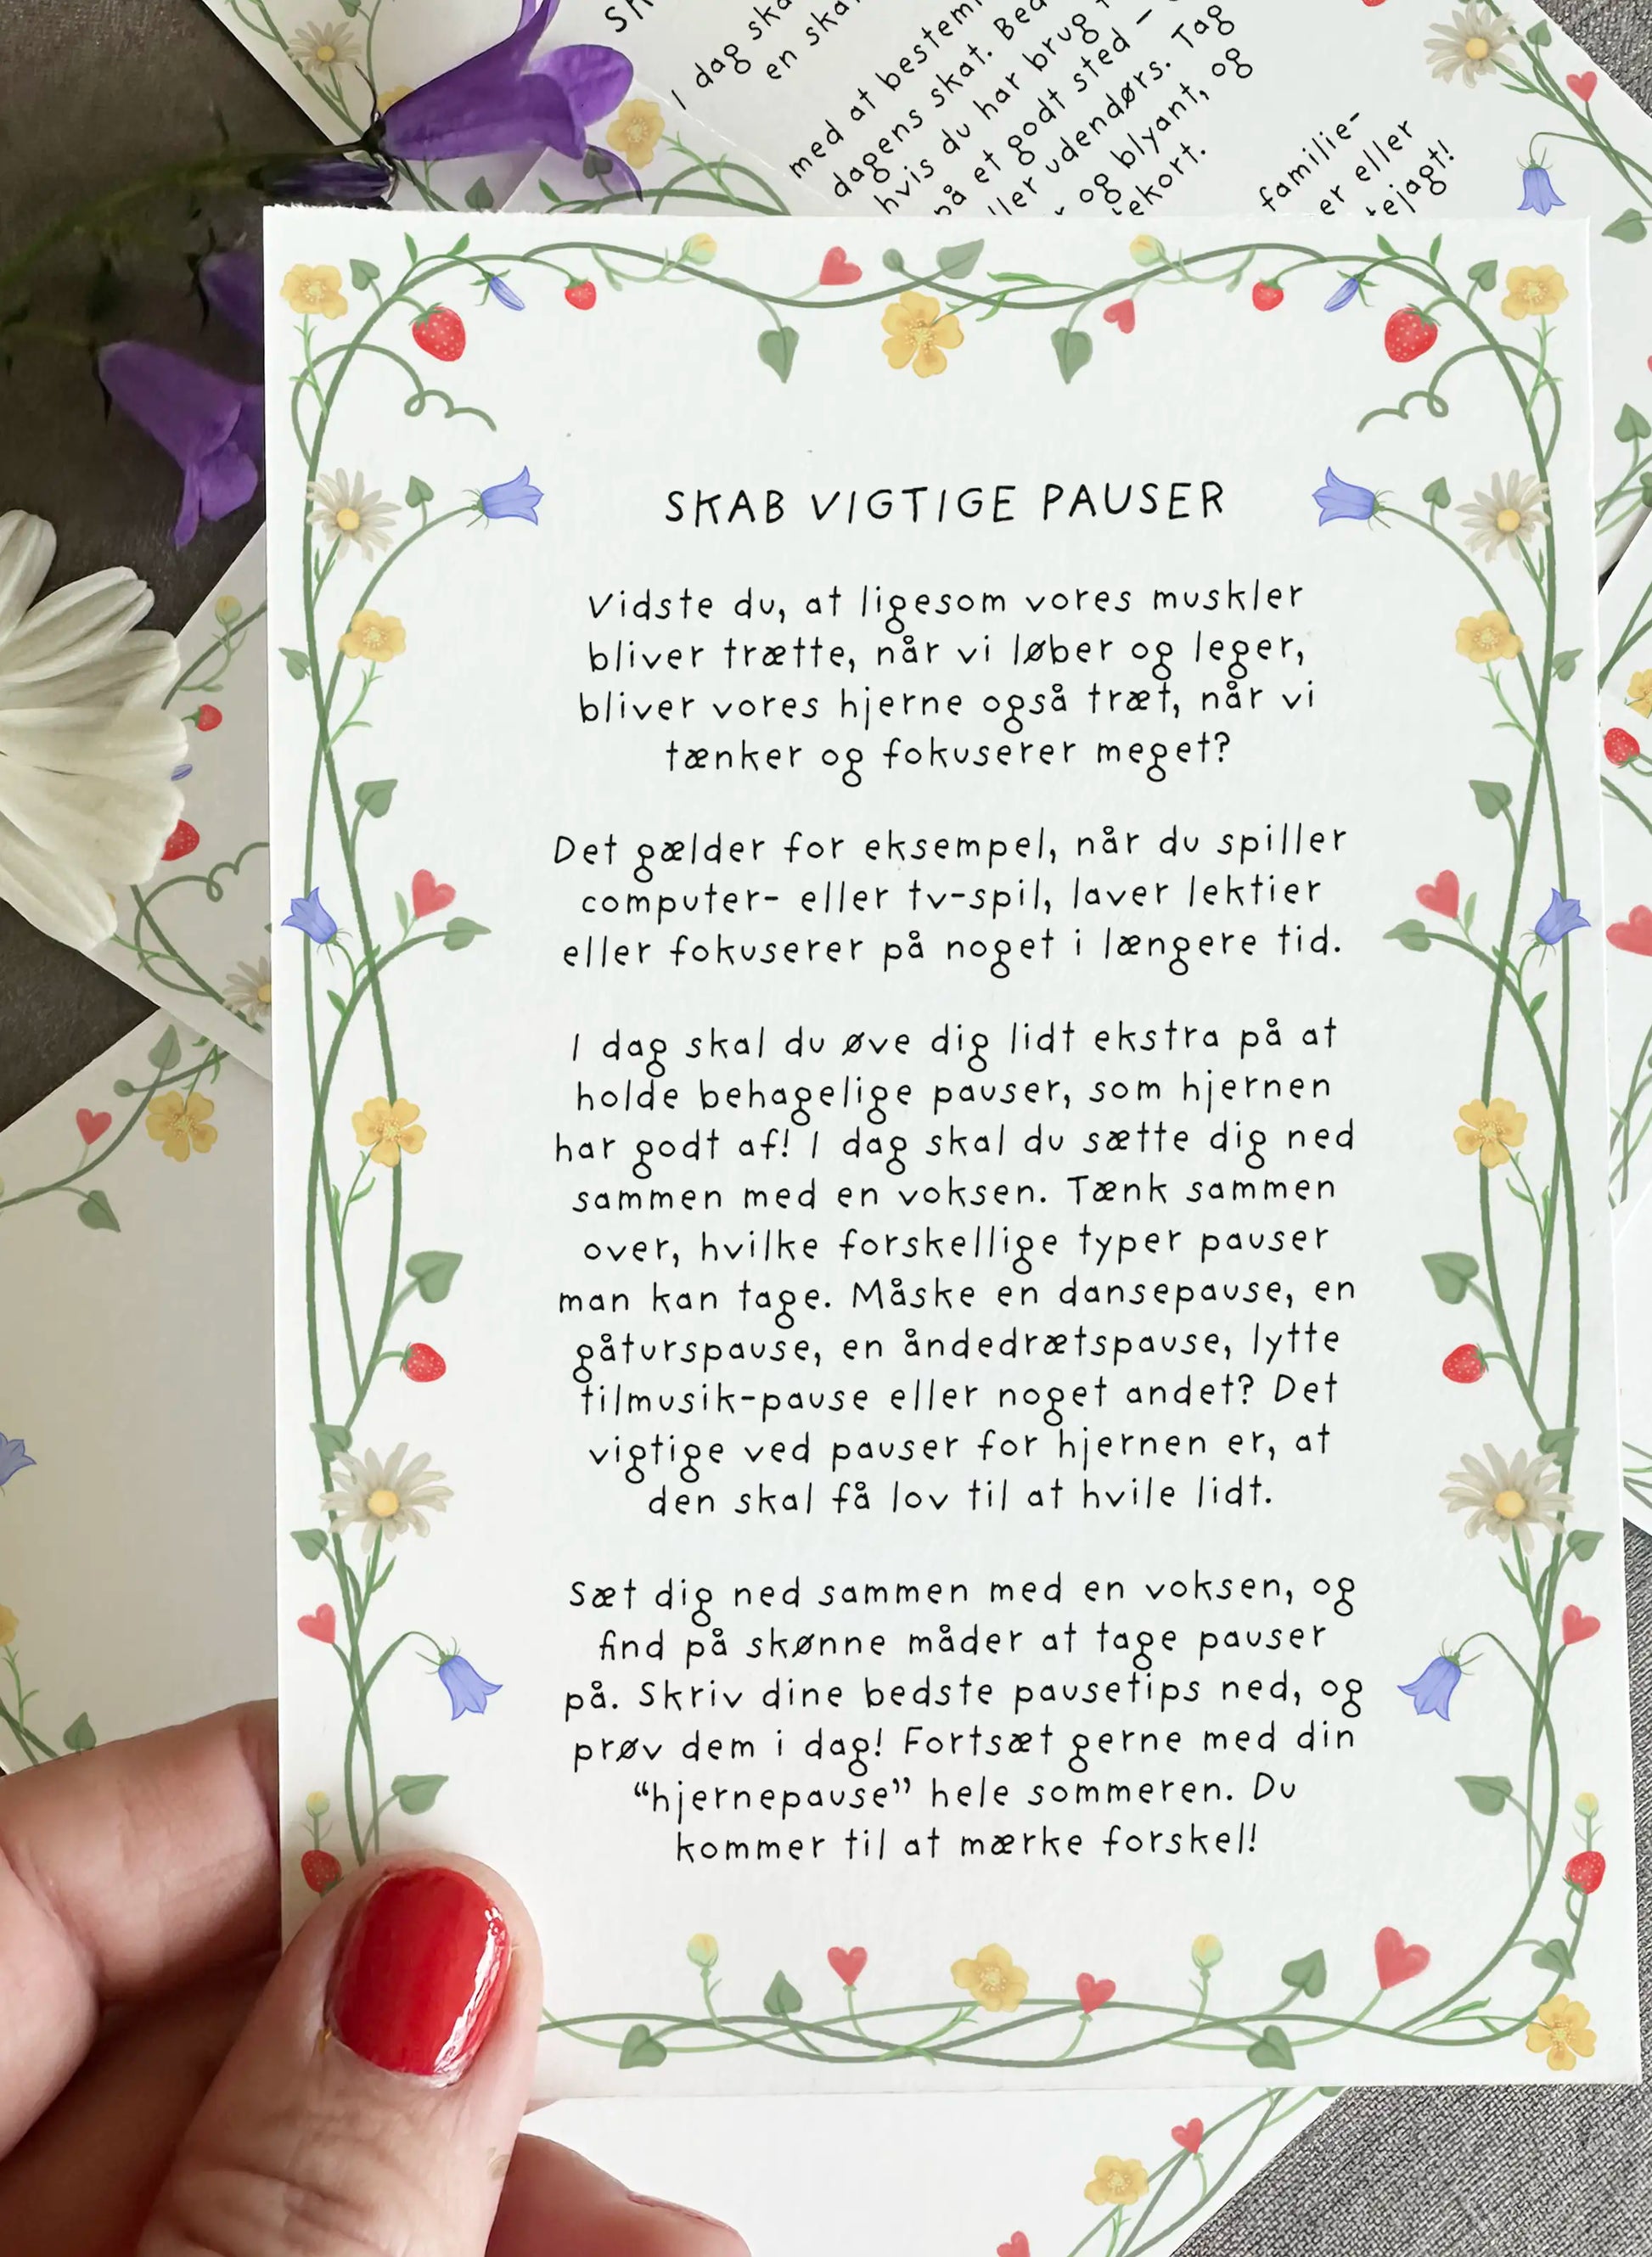 I dag
en
med at
dagens skat.
hvis du har brug
på et godt sted –
udendørs. Tag
og blyant, og
familie-
er eller
SKAB VIGTIGE PAUSER
Vidste du, at ligesom vores muskler
bliver trætte, når vi løber og leger,
bliver vores hjerne også træt, når vi
tænker og fokuserer meget?
Det gælder for eksempel, når du spiller
computer- eller tv-spil, laver lektier
eller fokuserer på noget i længere tid.
I dag skal du øve dig lidt ekstra på at
holde behagelige pauser, som hjernen
har godt af! I dag skal du sætte dig ned
sammen med en voksen. Tænk sammen
over, hvilke forskellige typer pauser
man kan tage. Måske en dansepause, en
gåturspause, en åndedrætspause, lytte
tilmusik-pause eller noget andet? Det
vigtige ved pauser for hjernen er, at
den skal få lov til at hvile lidt.
Sæt dig ned sammen med en voksen, og
find på skønne måder at tage pauser
på. Skriv dine bedste pausetips ned, og
prøv dem i dag! Fortsæt gerne med din
“hjernepause” hele sommeren. Du
kommer til at mærke forskel!